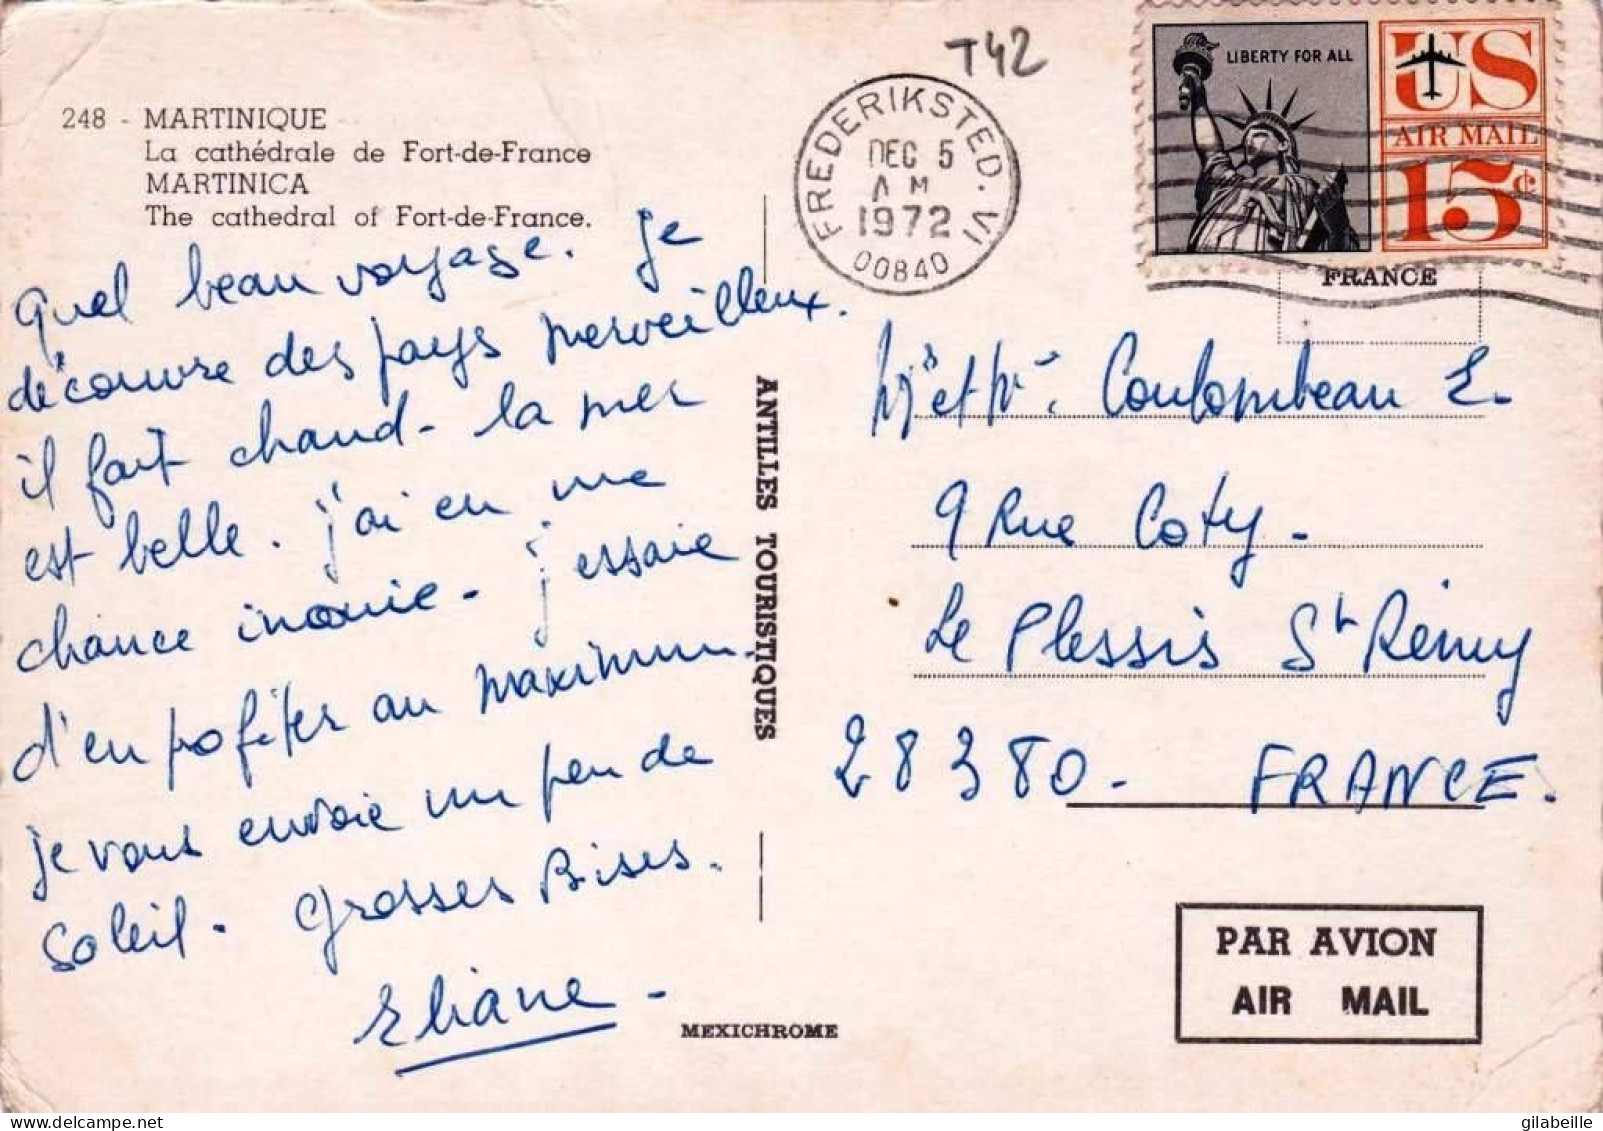 248 - MARTINIQUE
La cathédrale de Fort-de-France
MARTINICA
The cathedral of Fort-de-France.
Quel beau voyage. Je
découvre des pays merveilleux.
il fait chaud - la mer
est belle. j'ai eu une
chance inouie - j'essaie
d'en profiter au maximum.
je vous envoie un peu de
soleil. Grosses Bises.
Eliane -
ANTILLES TOURISTIQUES
MEXICHROME
T42
FREDERIKSTED. VI
DEC 5
AM
1972
00840
LIBERTY FOR ALL
US
AIR MAIL
15¢
FRANCE
Mr et Mme Coulombeau E.
9 Rue Coty -
Le Plessis St Rémy
28380 - FRANCE.
PAR AVION
AIR MAIL
gilabeille